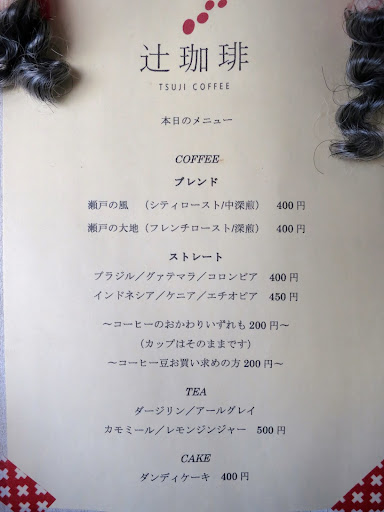 辻珈琲
TSUJI COFFEE
本日のメニュー
COFFEE
ブレンド
瀬戸の風　（シティロースト/中深煎）　400 円
瀬戸の大地（フレンチロースト/深煎）　400 円
ストレート
ブラジル／グァテマラ／コロンビア　400 円
インドネシア／ケニア／エチオピア　450 円
～コーヒーのおかわりいずれも 200 円～
（カップはそのままです）
～コーヒー豆お買い求めの方 200 円～
TEA
ダージリン／アールグレイ
カモミール／レモンジンジャー　500 円
CAKE
ダンディケーキ　400 円